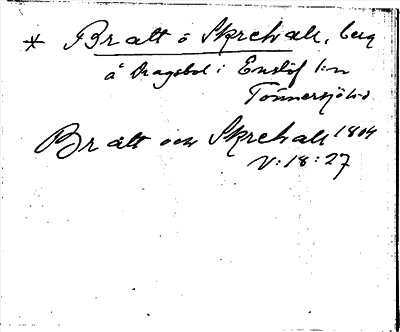 * Bratt o Skrehall, berg
å Dragsbol i Enslöf s:n
Tönnersjö h:d
Bratt och Skrehall 1804
V: 18: 27